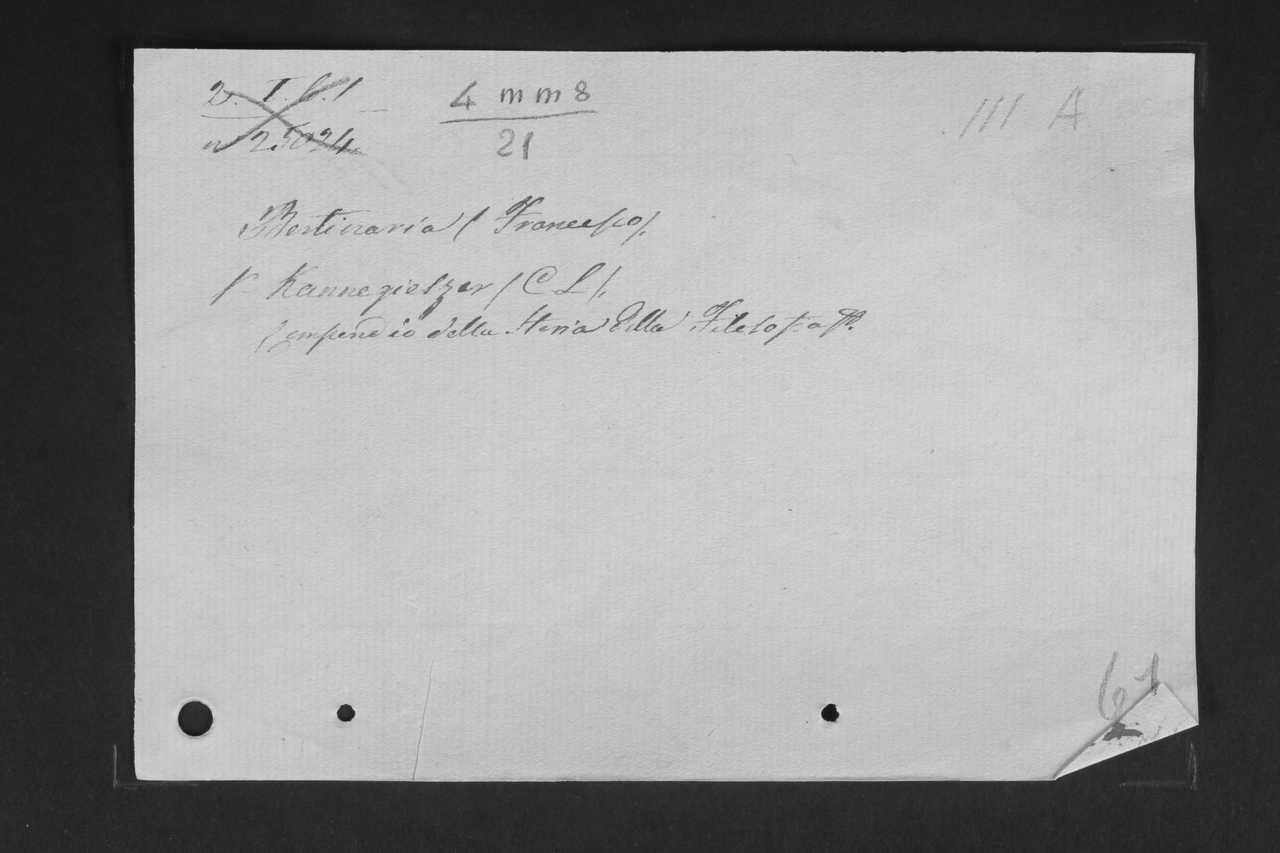 2. I. 6. 1
4 mm 8
III A
n 25024
21
Bertinaria (Francesco).
V Kannegieszer (C L).
Compendio della Storia della Filosofia
61